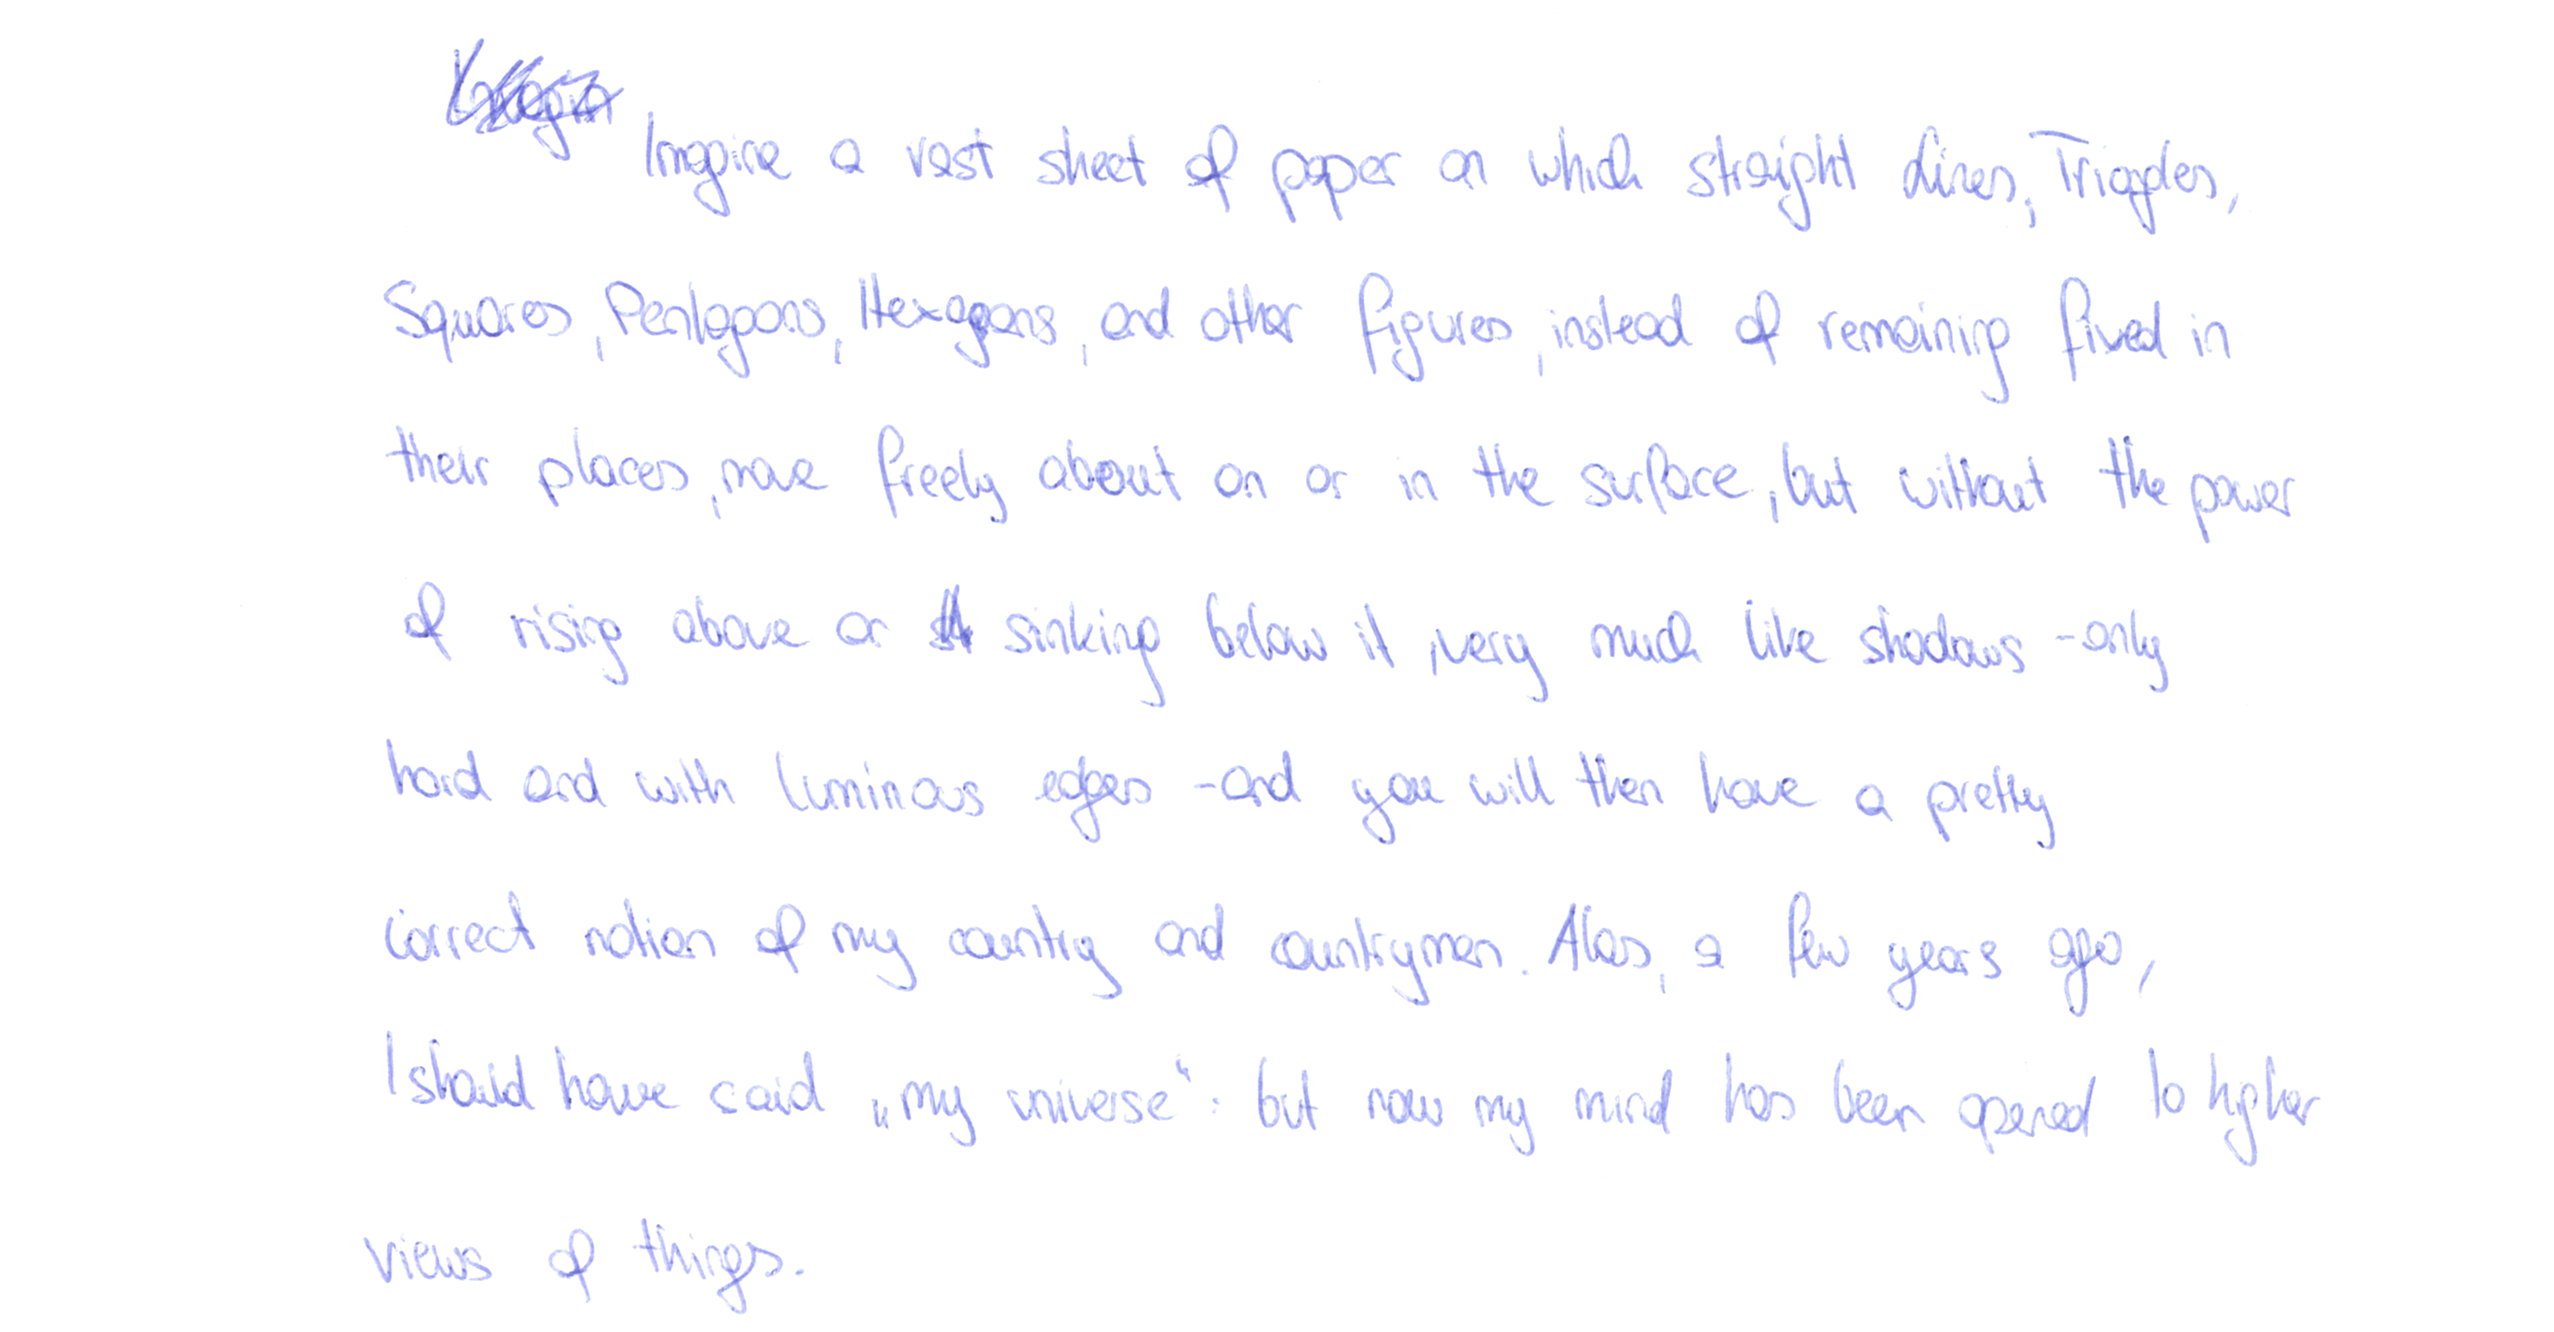 Imagine a vast sheet of paper on which straight Lines, Triangles,
Squares, Pentagons, Hexagons, and other figures, instead of remaining fixed in
their places, move freely about on or in the surface, but without the power
of rising above or sinking below it, very much like shadows - only
hard and with luminous edges - and you will then have a pretty
correct notion of my country and countrymen. Alas, a few years ago,
I should have said „my universe“: but now my mind has been opened to higher
views of things.